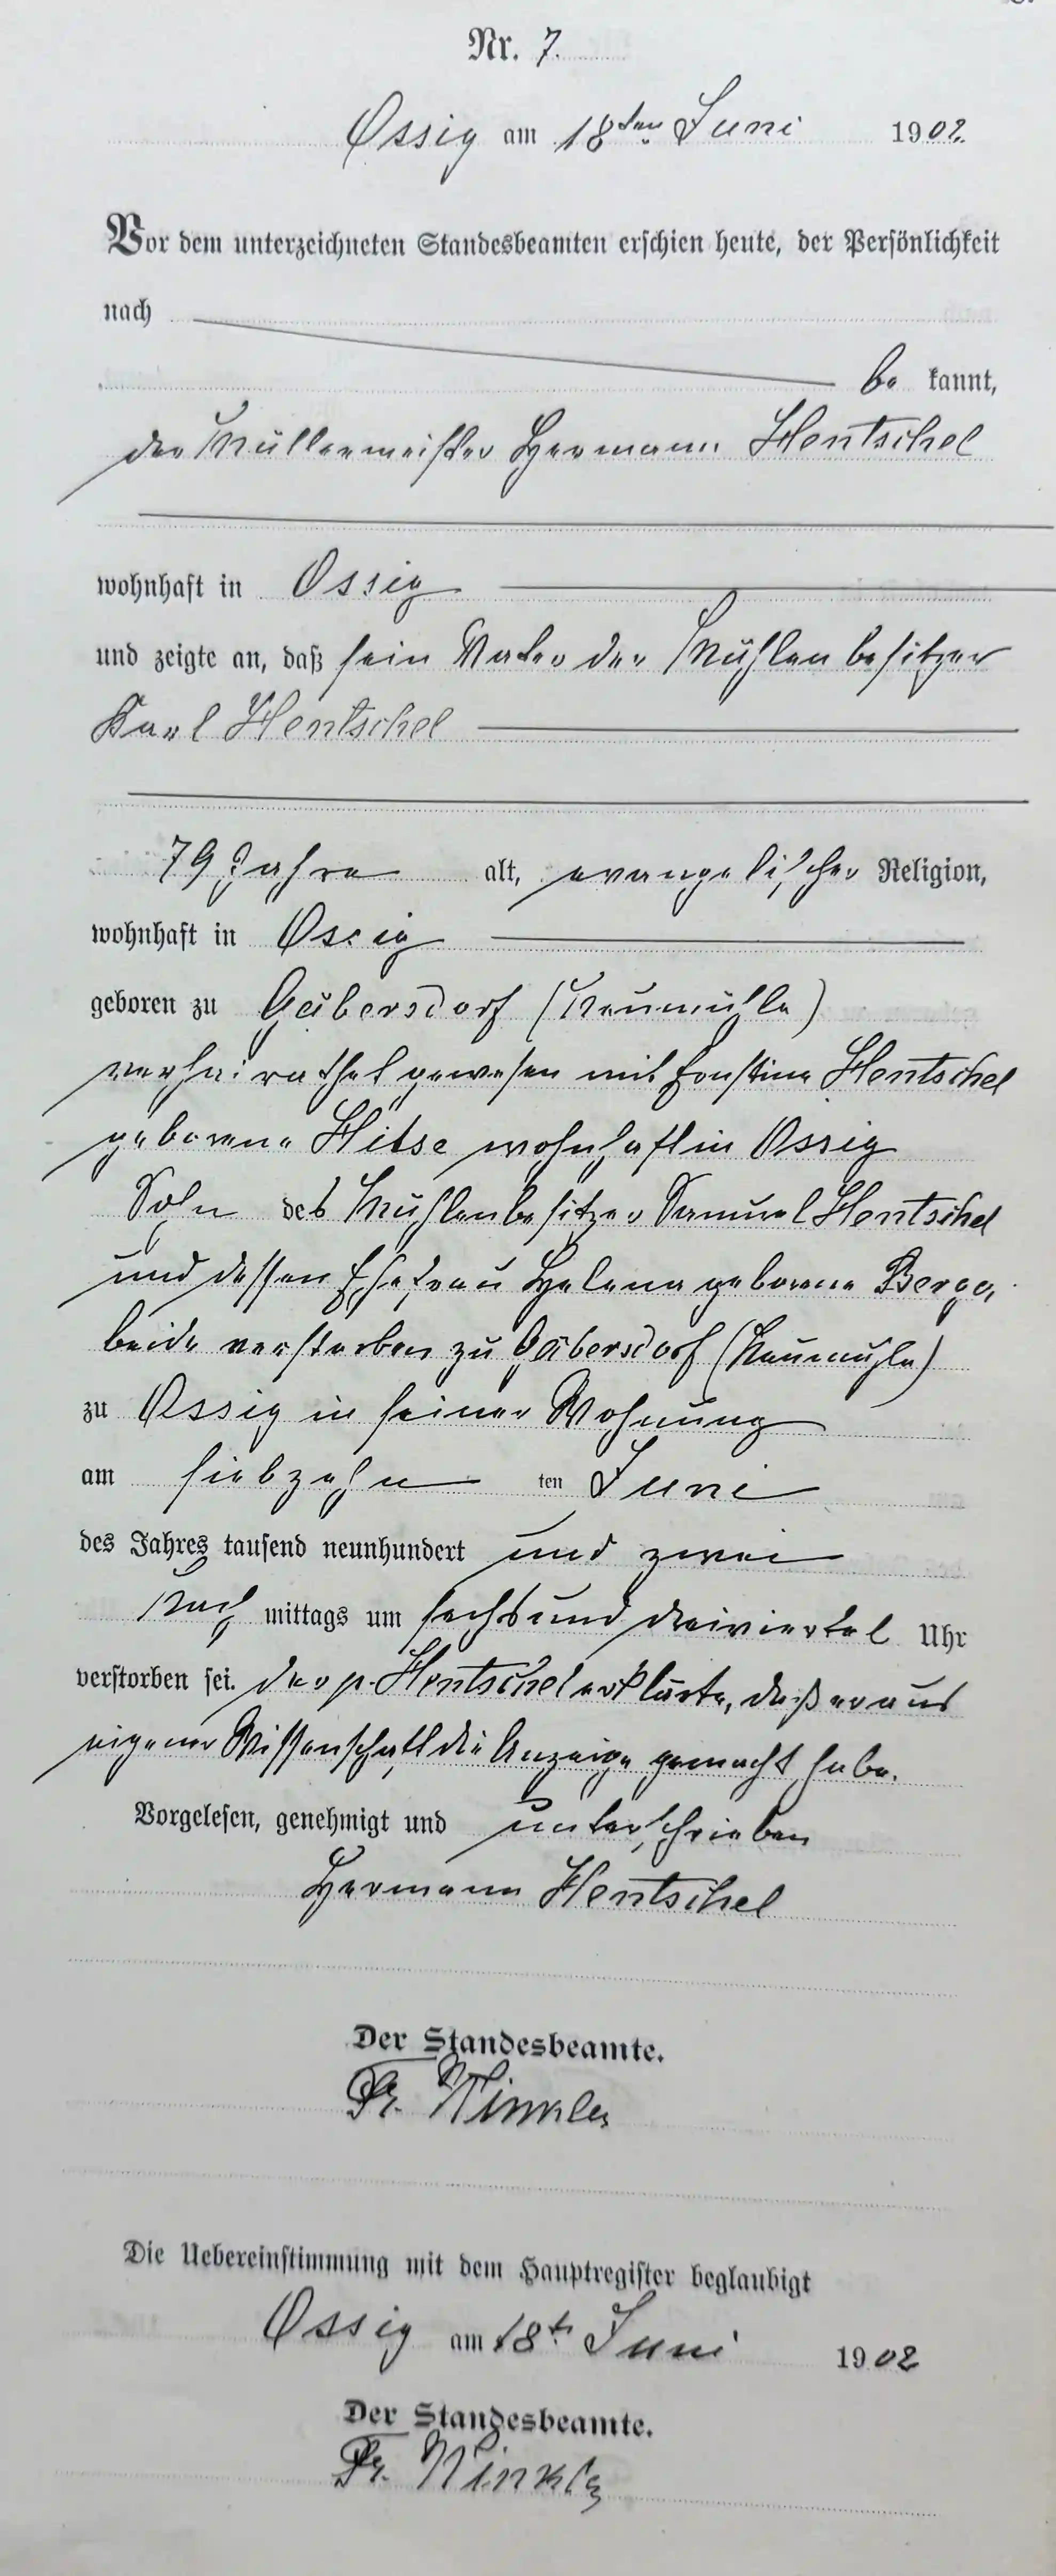 Nr. 7.
Ossig am 18ten Juni 1902.
Vor dem unterzeichneten Standesbeamten erschien heute, der Persönlichkeit
nach
be kannt,
der Müllermeister Hermann Hentschel
wohnhaft in Ossig
und zeigte an, daß sein Vater der Mühlenbesitzer
Karl Hentschel
79 Jahre alt, evangelischer Religion,
wohnhaft in Ossig
geboren zu Gäbersdorf (Neumühle)
verheirathet gewesen mit Ernstine Hentschel
geborene Hilse wohnhaft in Ossig
Sohn des Mühlenbesitzer Samuel Hentschel
und dessen Ehefrau Helena geborene
beide verstorben zu Gäbersdorf (Neumühle)
zu Ossig in seiner Wohnung
am siebzehn ten Juni
des Jahres tausend neunhundert und zwei
Nach mittags um sechs und dreiviertel Uhr
verstorben sei. Der p. Hentschel erklärte, daß er aus
eigener Wissenschaft die Anzeige gemacht habe.
Vorgelesen, genehmigt und unterschrieben
Hermann Hentschel
Der Standesbeamte.
Fr. Winkler
Die Uebereinstimmung mit dem Hauptregister beglaubigt
Ossig am 18t Juni 1902
Der Standesbeamte.
Fr. Winkler